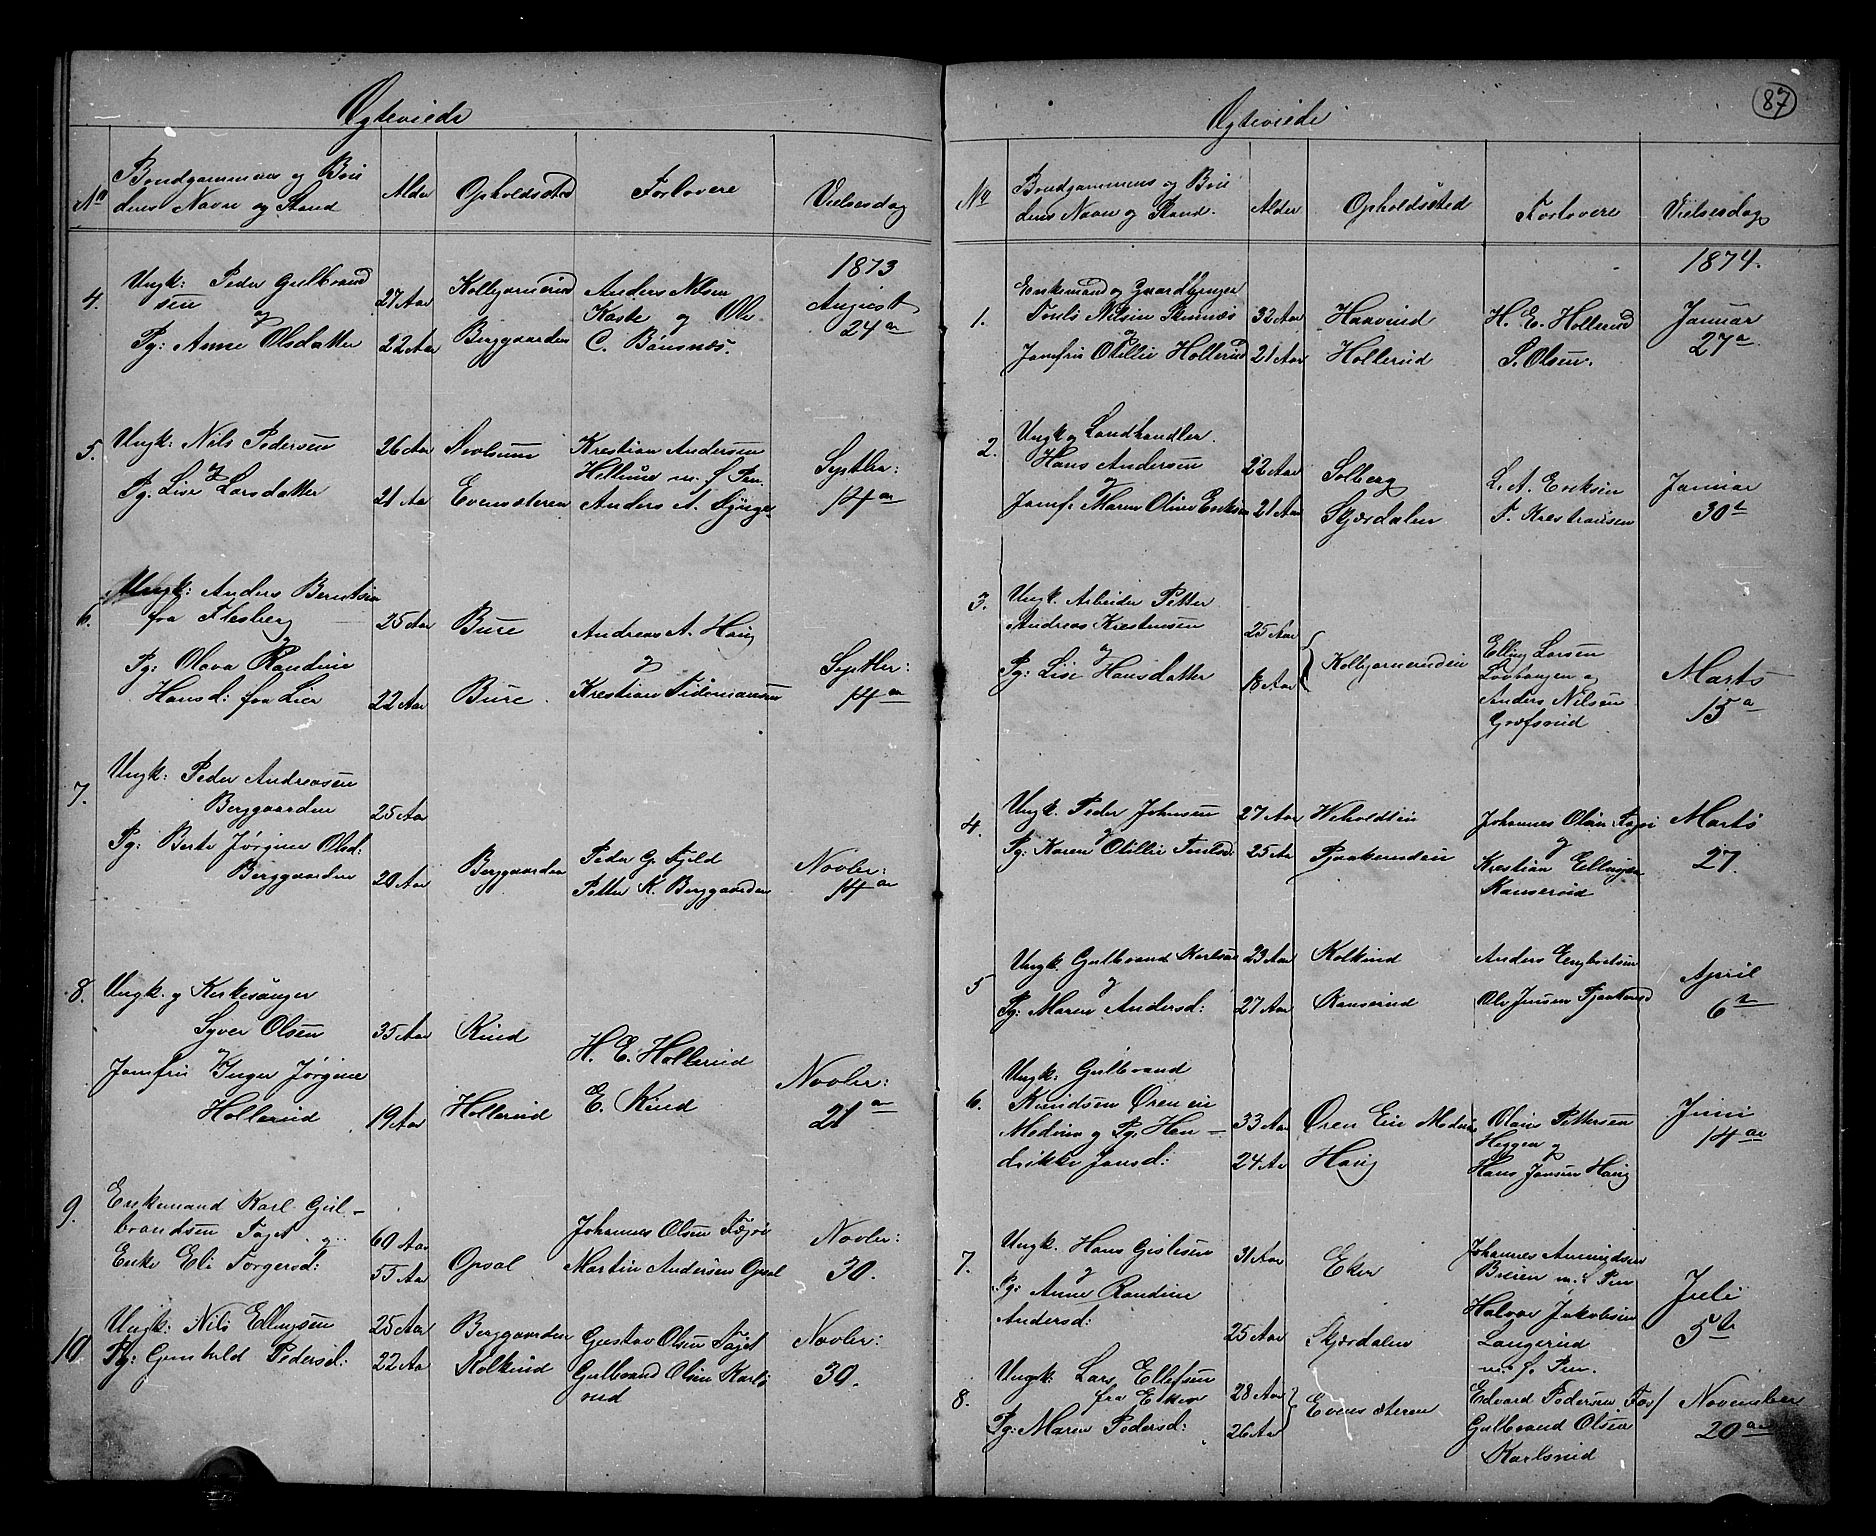 Egteviede
No
Brudgommens og Bru
dens Navn og Stand
Alder
Opholdssted
Forlovere
Vielsesdag
1873
4.
Ungk: Peder Gulbrand
sen
27 Aar
og
Pg: Anne Olsdatter
22 Aar
Berggaarden
Anders Nilsen
og Ole
C. Bønsnæs.
August
24de
5.
Ungk: Nils Pedersen
26 Aar
og
Pg. Lise Larsdatter
21 Aa
Evensæteren
Krestian Andersen
m. f. Pen.
Anders A.
Septbr:
14de
6.
Ungk: Anders Berntsen
fra Flesberg
25 Aar
Bure
og
Pg: Olava Randine
Hansd: fra Lier
22 Aar
Bure
Andreas A. Haug
og
Krestian Tidemansen
Septbr:
14de
7.
Ungk: Peder Andreasen
Berggaarden
25 Aar
Pg: Berte Jørgine Olsd:
Berggaarden
20 Aar
Berggaarden
Peder G. Fjeld
Petter K. Berggaarden
Novbr:
14de
8.
Ungk. og Kirkesanger
Syver Olsen
35 Aar
Rud
og
Jomfru Inger Jørgine
Hollerud
19 Aar
Hollerud
H. E. Hollerud
E. Rud
Novbr:
21de
9.
Enkemand Karl Gul-
brandsen Faget og
60 Aar
Enke Eli Torgersd:
55 Aar
Opsal
Johannes Olsen
Martin Andersen Opsal
Novbr:
30.
10.
Ungk: Nils Ellingsen
25 Aar
Pg: Gunhild Pedersd:
22 Aar
Berggaarden
Kolkind
Gustav Olsen Faget
Gulbrand Olsen Karls
rud
Novbr:
30.
87
Egteviede
No
Brudgommens og Bru
dens Navn og Stand.
Alder
Opholdssted
Forlovere
Vielsesdag
1874.
1.
Enkemand og Gaardbruger
Truls Nilsen
32 Aar
Haavrud
og
Jomfru Otillie Hollerud
21 Aar
Hollerud
H. E. Hollerud
S. Olsen.
Januar
27de
2.
Ungk og Landhandler
Hans Andersen
22 Aar
Solberg
og
Jomf: Maren Oline Eriksen
21 Aar
Skjærdalen
L. A. Eriksen
F. Krestiansen
Januar
30te
3.
Ungk. Arbeider Petter
Andreas Krestensen
25 Aar
og
Pg: Lise Hansdatter
18 Aar
Elling Larsen
og
Anders Nilsen
Marts
15de
4.
Ungk. Peder Johnsen
27 Aar
og
Pg: Karen Otillie Trulsd:
25 Aa
Johannes Olsen
og
Krestian Ellingsen
Ranserud
Marts
27.
5
Ungk. Gulbrand Karlsen
23 Aar
Kolkind
og
Pg: Maren Andersd:
27 Aar
Ranserud
Anders Engbretsen
Ole Jensen
April
6te
6.
Ungk: Gulbrand
Knudsen Øren eie
Modum og Pg. Hen-
drikke Jonsd:
33 Aar
24 Aa
Øren Eie Modum
Haug
Olaus Pettersen
Heggen og
Hans Jansen Haug
Juni
14de
7.
Ungk. Hans Gislesen
31 Aar
Eker
og
Pg: Anne Randine
Andersd:
25 Aar
Skjærdalen
Johannes Amundsen
Breien m. f. Pen
Halvor Jakobsen
Langerud
m. f. Pen.
Juli
5te
8.
Ungk: Lars Ellefsen
fra Eker
28 Aar
Pg: Maren Pedersd:
26 Aar
Evensæteren
Edvard Pedersen
Gulbrand Olsen
Karlsrud
November
20de